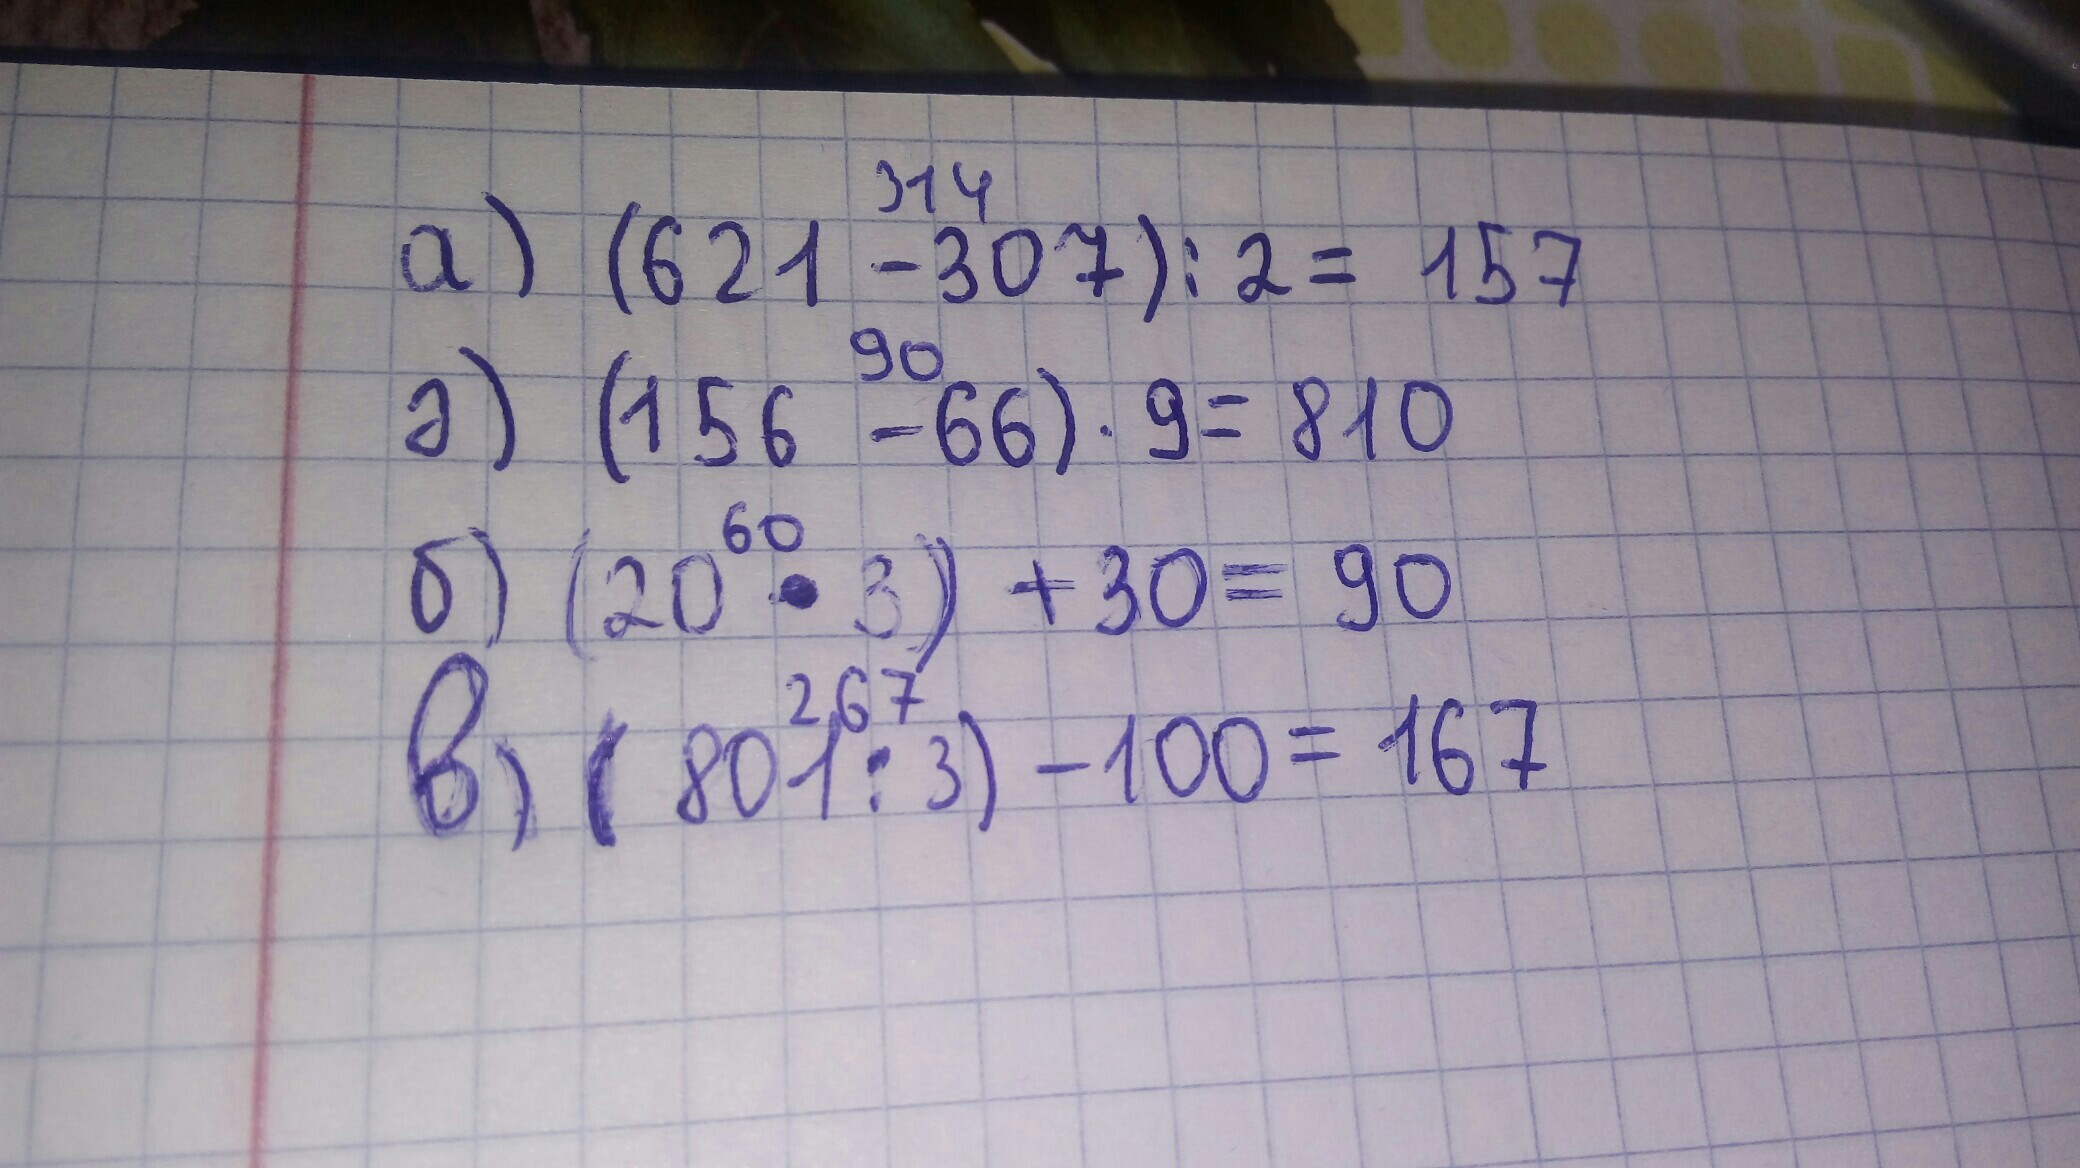 314
а) (621 - 307) : 2 = 157
90
г) (156 - 66) · 9 = 810
60
б) (20 · 3) + 30 = 90
267
в) (801 : 3) - 100 = 167